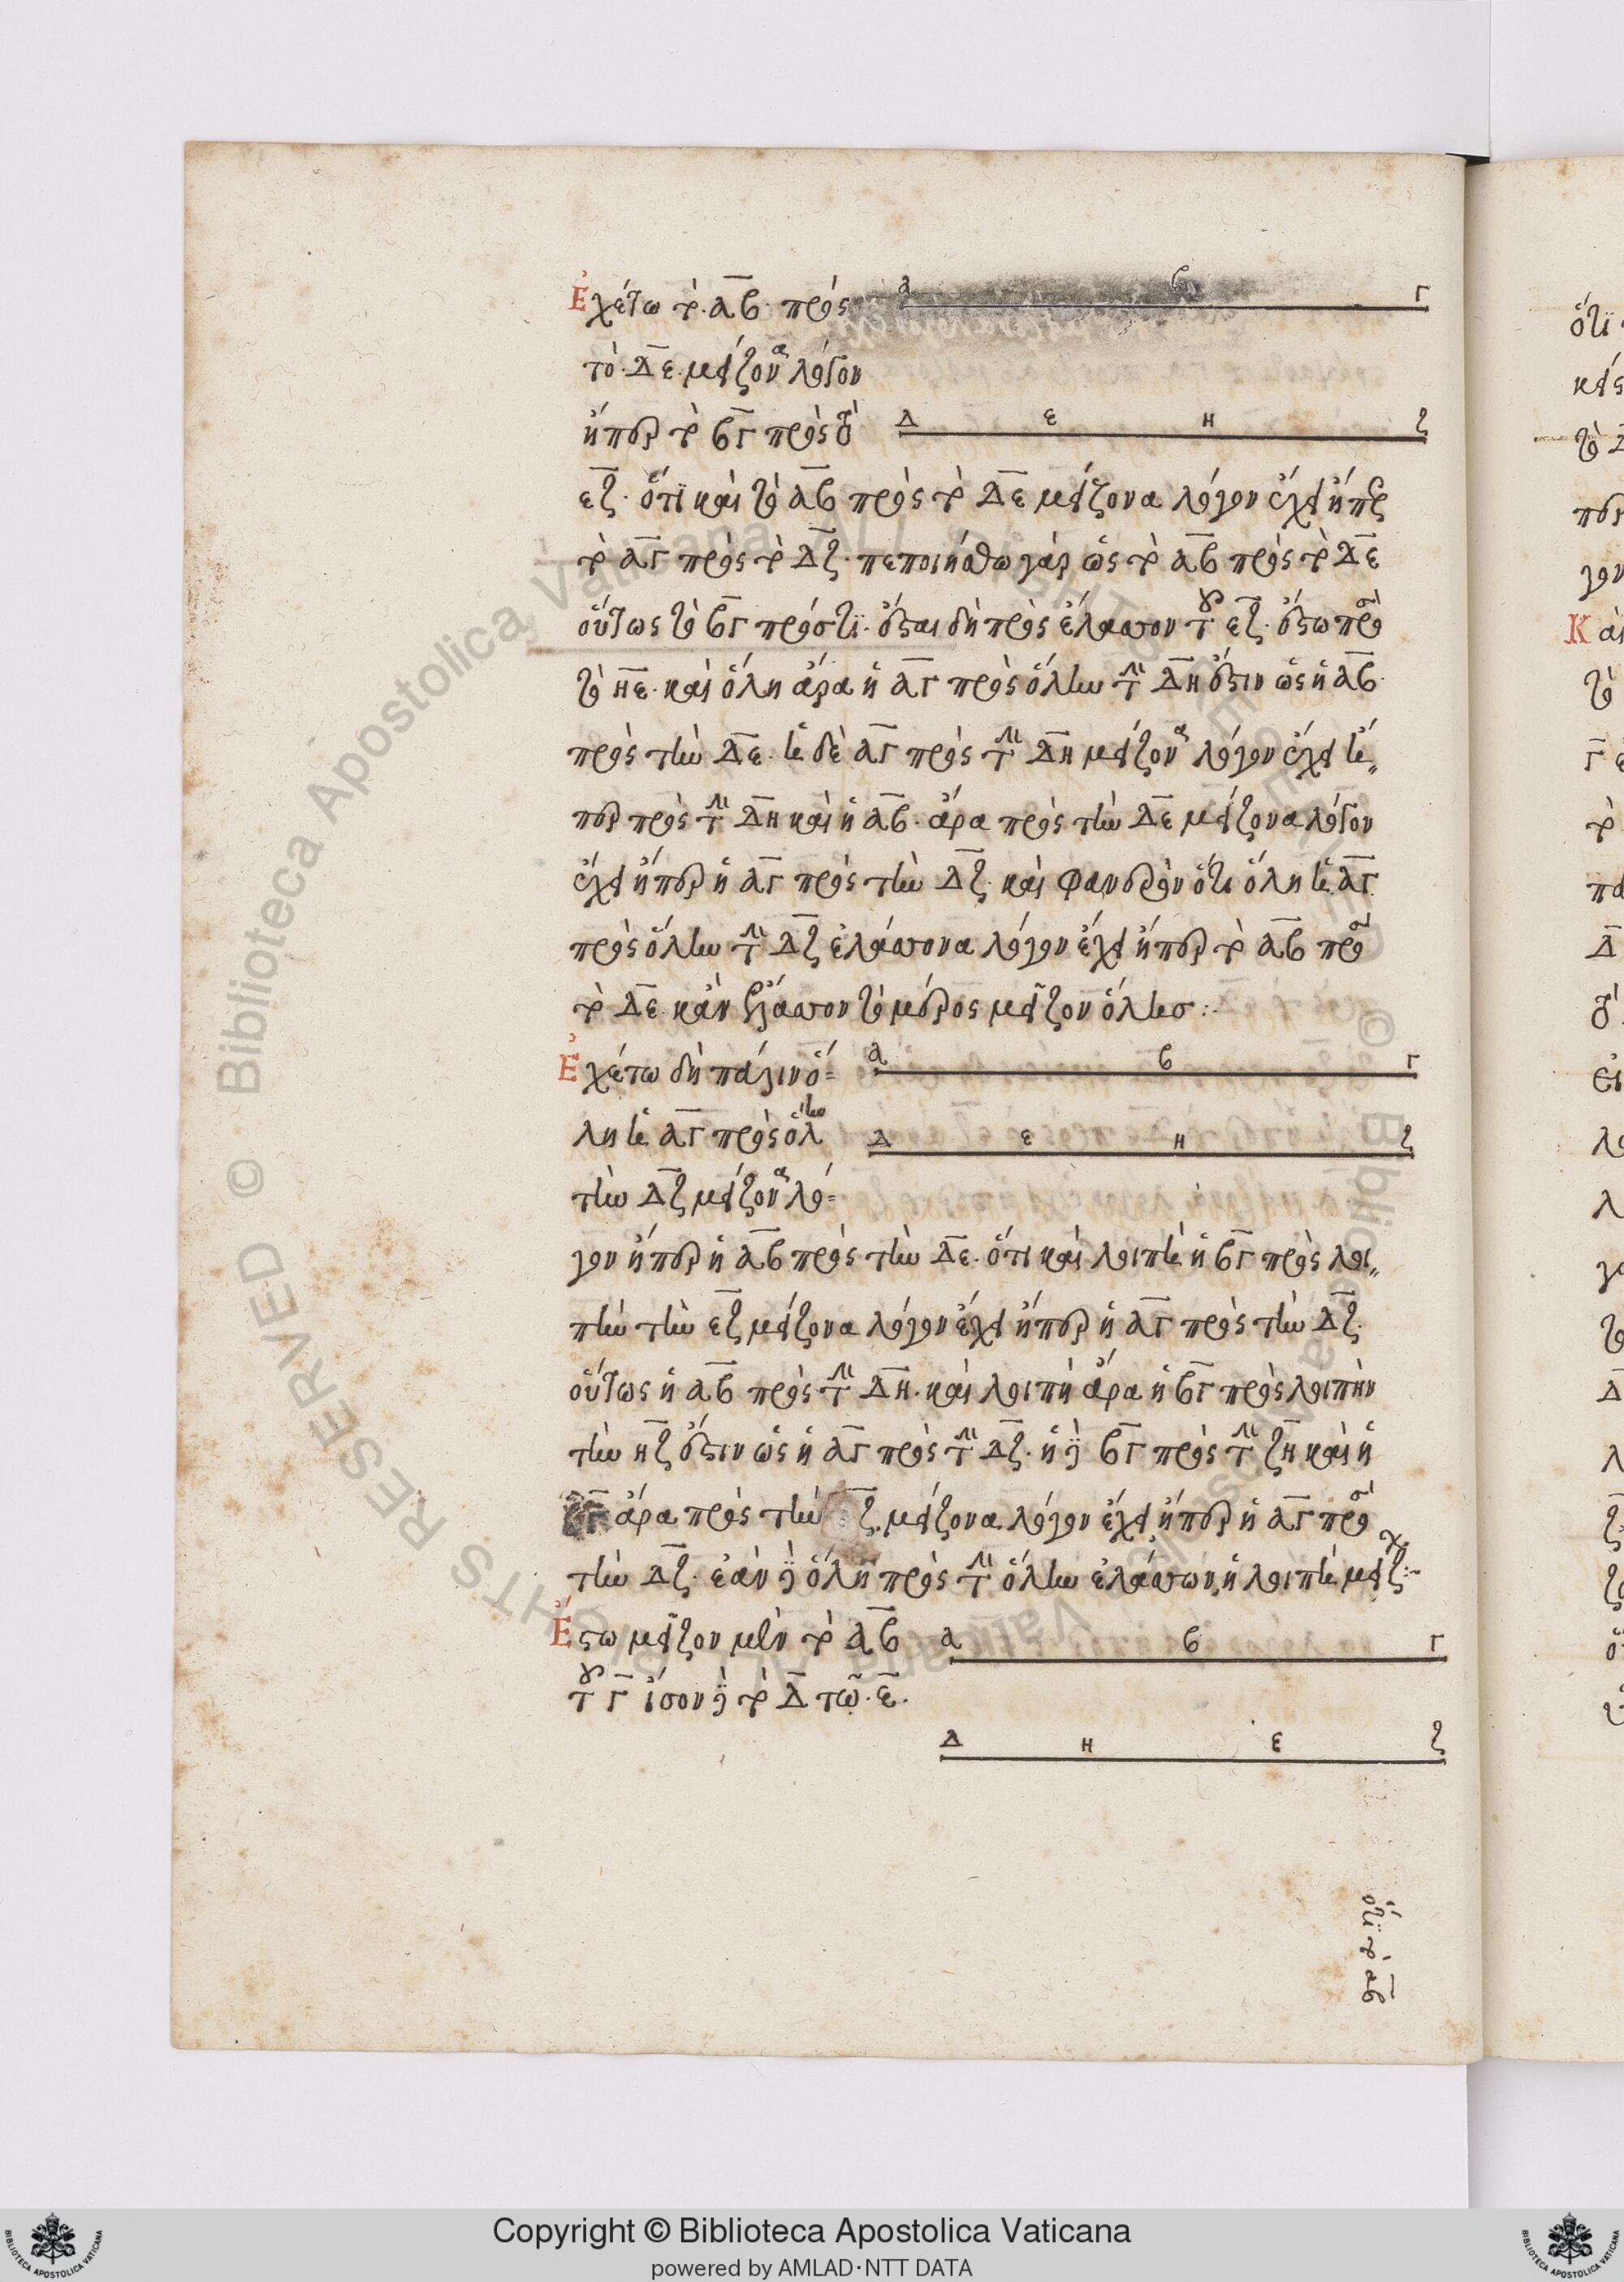 Ἐχέτω τὸ. α̅β̅. πρὸς
α β Γ
τὸ. Δ̅ε̅. μείζονα λόγον
ἤπερ τὸ β̅Γ̅ πρὸς τὸ
Δ ε η ζ
ε̅ζ̅. ὅτι καὶ τὸ α̅β̅ πρὸς τὸ Δ̅ε̅ μείζονα λόγον ἔχει ἤπερ
τὸ α̅Γ̅ πρὸς τὸ Δ̅ζ̅. πεποιήσθω γὰρ ὡς τὸ α̅β̅ πρὸς τὸ Δ̅ε̅
οὕτως τὸ β̅Γ̅ πρός τι. ἔσται δὴ πρὸς ἔλαττον τοῦ ε̅ζ̅. ἔστω πρὸς
τὸ η̅ε̅. καὶ ὅλη ἄρα ἡ α̅Γ̅ πρὸς ὅλην τὴν Δ̅η̅ ἔστιν ὡς ἡ α̅β̅.
πρὸς τὴν Δ̅ε̅. ἡ δὲ α̅Γ̅ πρὸς τὴν Δ̅η̅ μείζονα λόγον ἔχει ἤ
περ πρὸς τὴν Δ̅η̅ καὶ ἡ α̅β̅. ἄρα πρὸς τὴν Δ̅ε̅ μείζονα λόγον
ἔχει ἤπερ ἡ α̅Γ̅ πρὸς τὴν Δ̅ζ̅. καὶ φανερὸν ὅτι ὅλη ἡ α̅Γ̅
πρὸς ὅλην τὴν Δ̅ζ̅ ἐλάττονα λόγον ἔχει ἤπερ τὸ α̅β̅ πρὸς
τὸ Δ̅ε̅. κἂν ἔλαττον τὸ μέρος μεῖζον ὅλης :.
Ἐχέτω δὴ πάλιν ὅ=
α β Γ
λη ἡ α̅Γ̅ πρὸς ὅλην
Δ ε η ζ
τὴν Δ̅ζ̅ μείζονα λό=
γον ἤπερ ἡ α̅β̅ πρὸς τὴν Δ̅ε̅. ὅτι καὶ λοιπὴ ἡ β̅Γ̅ πρὸς λοι
πὴν τὴν ε̅ζ̅ μείζονα λόγον ἔχει ἤπερ ἡ α̅Γ̅ πρὸς τὴν Δ̅ζ̅.
οὕτως ἡ α̅β̅ πρὸς τὴν Δ̅η̅. καὶ λοιπὴ ἄρα ἡ β̅Γ̅ πρὸς λοιπὴν
τὴν η̅ζ̅ ἔστιν ὡς ἡ α̅Γ̅ πρὸς τὴν Δ̅ζ̅. ἡ δὲ β̅Γ̅ πρὸς τὴν ζ̅η̅ καὶ ἡ
β̅Γ̅ ἄρα πρὸς τὴν ζ̅. μείζονα λόγον ἔχει ἤπερ ἡ α̅Γ̅ πρὸς
τὴν Δ̅ζ̅. ἐὰν δὲ ὅλη πρὸς τὴν ὅλην ἐλάττων, ἡ λοιπὴ μείζων :~
Ἔστω μεῖζον μὲν τὸ α̅β̅
α β Γ
τοῦ Γ̅ ἴσον δὲ τὸ Δ̅ τῷ. ε̅.
Δ η ε ζ
ὅτι τὸ α̅β̅